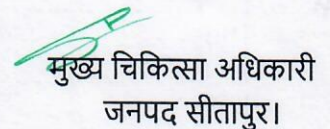 मुख्य चिकित्सा अधिकारी
जनपद सीतापुर।